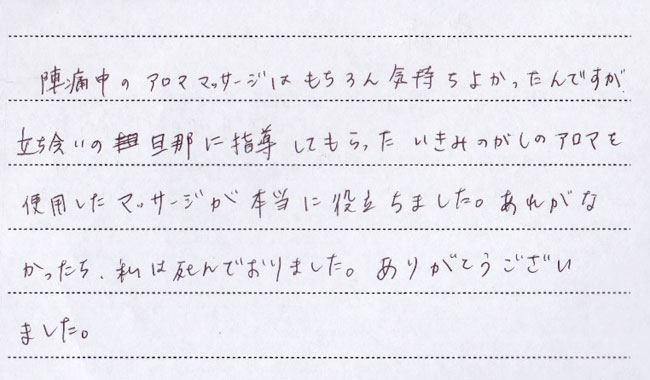 陣痛中のアロママッサージはもちろん気持ちよかったんですが、
立ち会いの旦那に指導してもらった いきみのがしのアロマを
使用したマッサージが本当に役立ちました。あれがな
かったら、私は死んでおりました。ありがとうござい
ました。